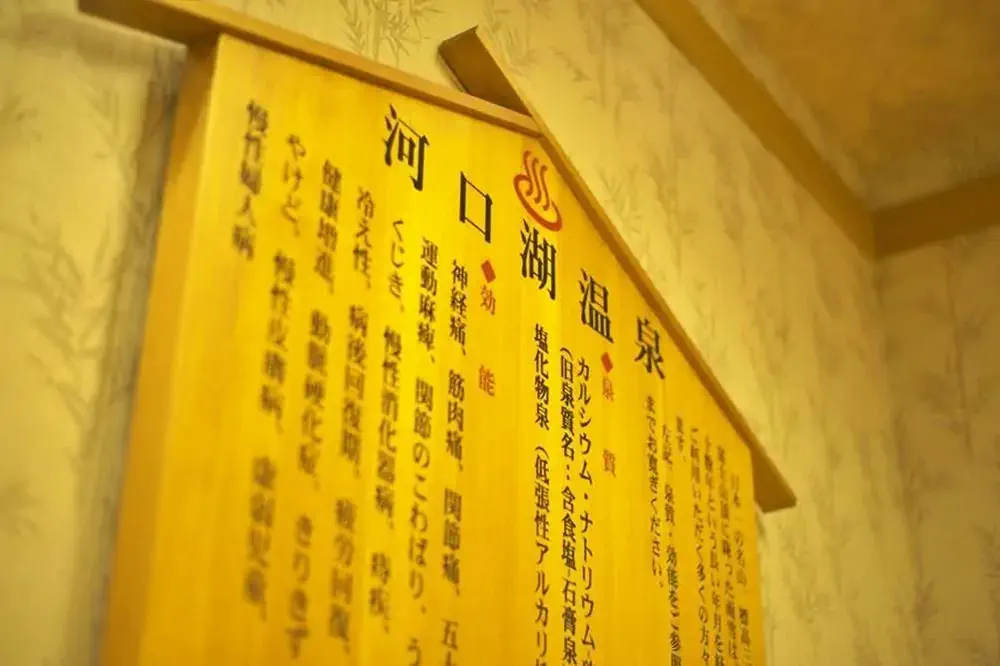 河口湖温泉
日本一の名山、標高三
に降った雨雪は
という長い年月を
ご利用いただく多くの方々
ます。
左記、泉質・効能をご参照
までお寛ぎください。
◆泉質
カルシウム・ナトリウム-
(旧泉質名:含食塩-石膏泉
塩化物泉 (低張性アルカリ
◆効能
神経痛、筋肉痛、関節痛、五十
運動麻痺、関節のこわばり、う
くじき、慢性消化器病、痔疾、
冷え性、病後回復期、疲労回復、
健康増進、動脈硬化症、きりきず
やけど、慢性皮膚病、虚弱児童、
慢性婦人病